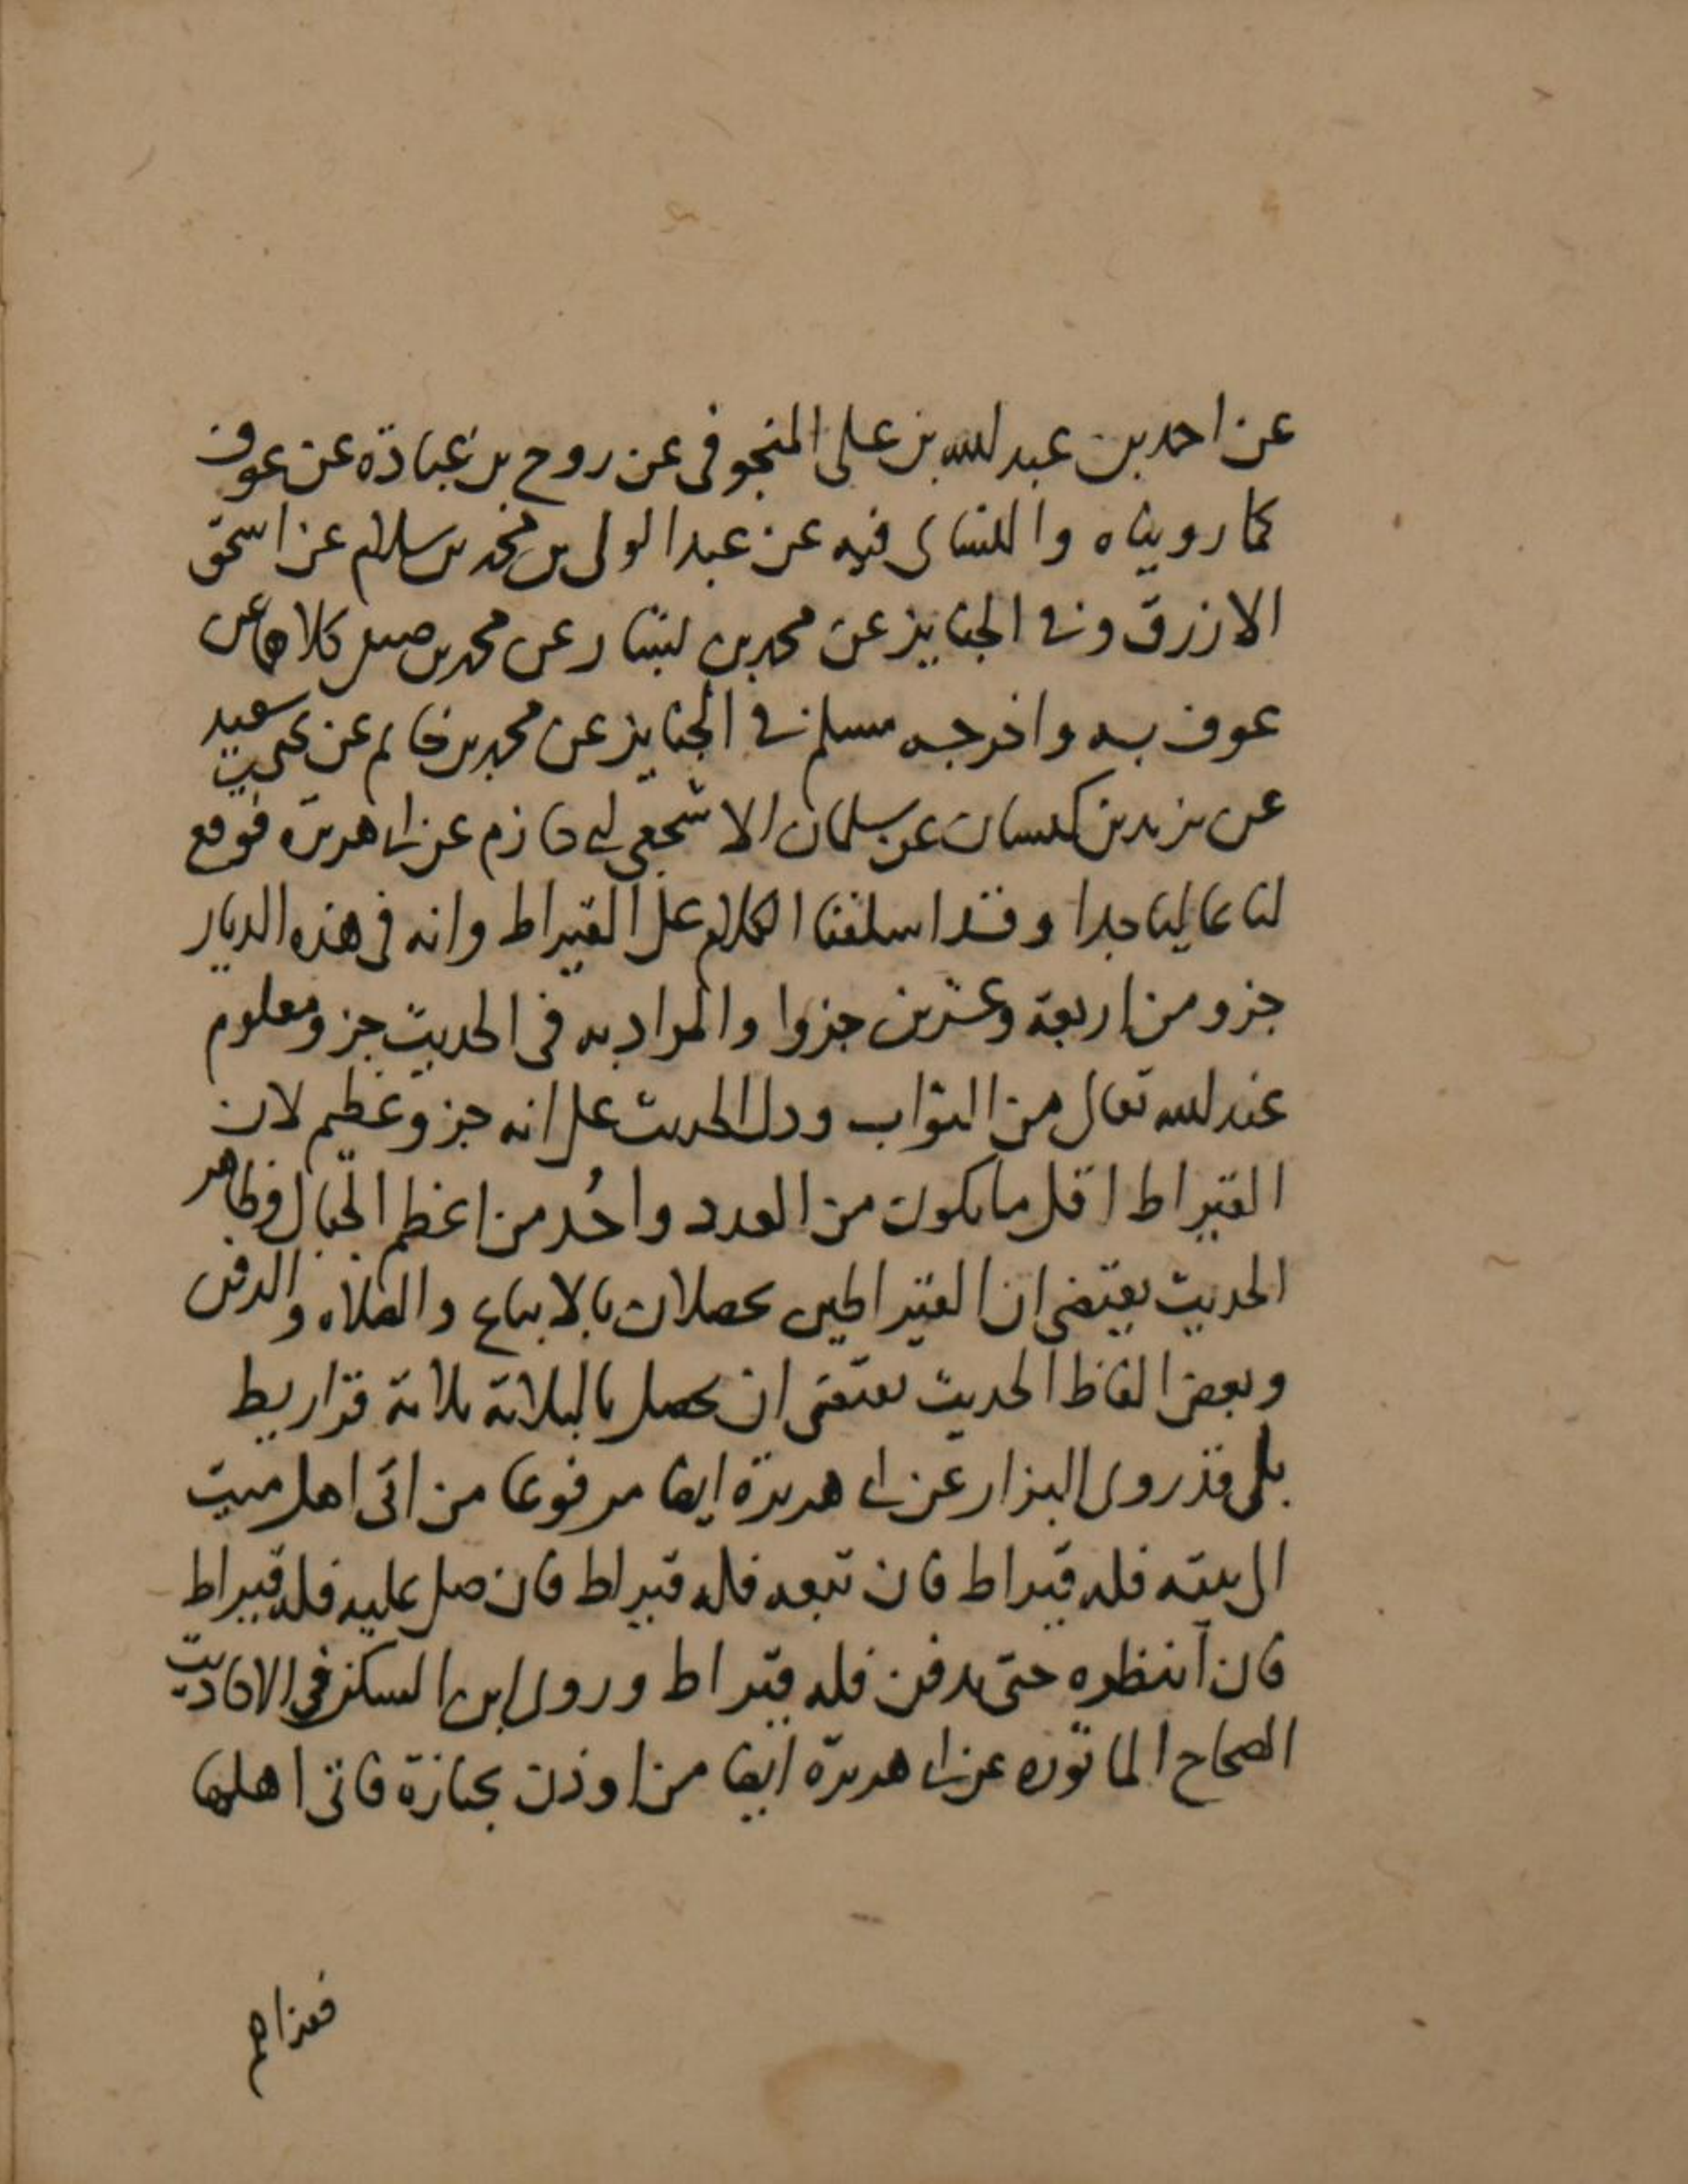 عن احمد بن عبد الله بن على المنجوفى عن روح بن عبادة عن عوف
كما رويناه والنساى فيه عن عبد الولى بن محمد بن سلام عن اسحق
الازرق وفى الجنايز عن محمد بن بشار عن محمد بن جعفر كلاهما عن
عوف به واخرجه مسلم فى الجنايز عن محمد بن حاتم عن يحيى بن سعيد
عن يزيد بن كيسان عن سلمان الاشجعى ابى حازم عن ابى هريرة فوقع
لنا عاليا جدا وقد اسلفنا الكلام على القيراط وانه فى هذه الديار
جزو من اربعة وعشرين جزوا والمراد به فى الحديث جزو معلوم
عند الله تعالى من الثواب ودل الحديث على انه جزو عظيم لان
القيراط اقل ما يكون من العدد واحُد من اعظم الجبال وظاهر
الحديث يقتضى ان القيراطين يحصلان بالاتباع والصلاه والدفن
وبعض الفاظ الحديث يقتضى ان يحصل بالثلاثة ثلاثة قراريط
بلى قد روى البزار عن ابى هريرة ايضا مرفوعا من اتى اهل ميت
الى بيته فله قيراط فان تبعه فله قيراط فان صلى عليه فله قيراط
فان انتظره حتى يدفن فله قيراط وروى ابن السكن فى الاحاديث
الصحاح الماثوره عن ابى هريرة ايضا من اوذن بجنازة فاتى اهلها
فعزاهم